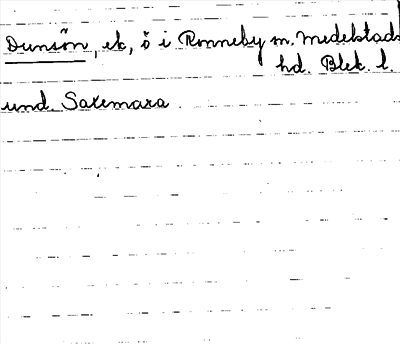 Dunsön, ek, ö i Ronneby m. Medelstads
hd. Blek. l.
und. Saxemara